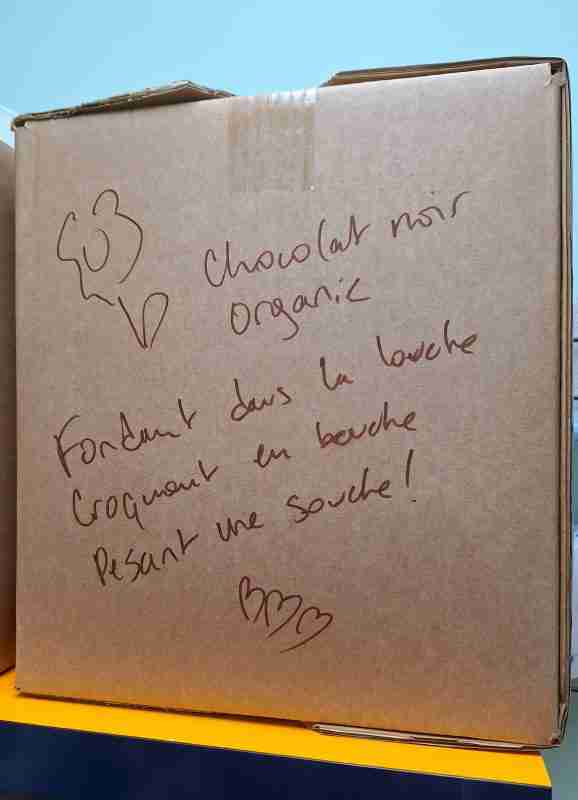 Chocolat noir
organic
Fondant dans la bouche
Croquant en bouche
Pesant une souche!